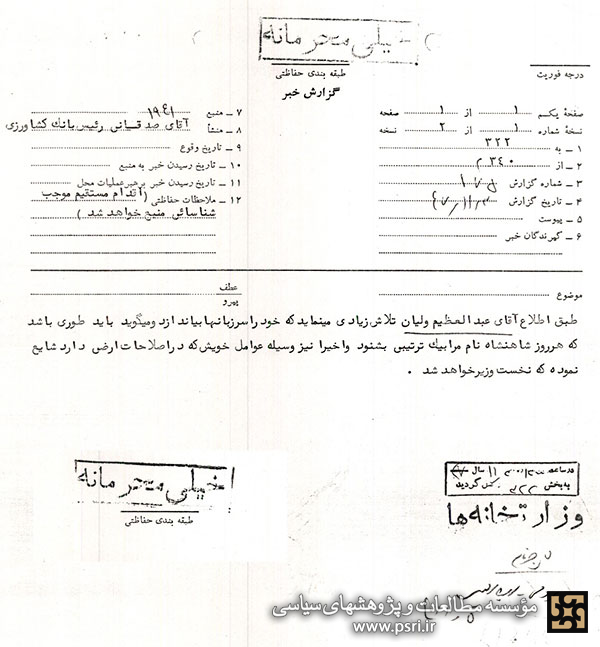 خیلی محرمانه
طبقه بندی حفاظتی
درجه فوریت
گزارش خبر
صفحهٔ یکم ۱ از ۱ صفحه
نسخهٔ شماره ۱ از ۲ نسخه
۱ ـ به ۳۲۲
۲ ـ از ۳۴۰
۳ ـ شماره گزارش
۴ ـ تاریخ گزارش
۵ ـ پیوست
۶ ـ گیرندگان خبر
۷ ـ منبع ۱۹۴۱
۸ ـ منشأ آقای صدقیانی رئیس بانک کشاورزی
۹ ـ تاریخ وقوع
۱۰ ـ تاریخ رسیدن خبر به منبع
۱۱ ـ تاریخ رسیدن خبر برهبر عملیات محل
۱۲ ـ ملاحظات حفاظتی (اقدام مستقیم موجب
شناسائی منبع خواهد شد)
موضوع
عطف
پیرو
طبق اطلاع آقای عبدالعظیم ولیان تلاش زیادی مینماید که خود را سر زبانها بیاندازد و میگوید باید طوری باشد
که هر روز شاهنشاه نام مرا بیک ترتیبی بشنود و اخیرا نیز وسیله عوامل خویش که در اصلاحات ارضی دارد شایع
نموده که نخست وزیر خواهد شد .
خیلی محرمانه
طبقه بندی حفاظتی
در ساعت
سال
به بخش ۳۲۲
گردید
وزارتخانه ها
مؤسسه مطالعات و پژوهشهای سیاسی
www.psri.ir